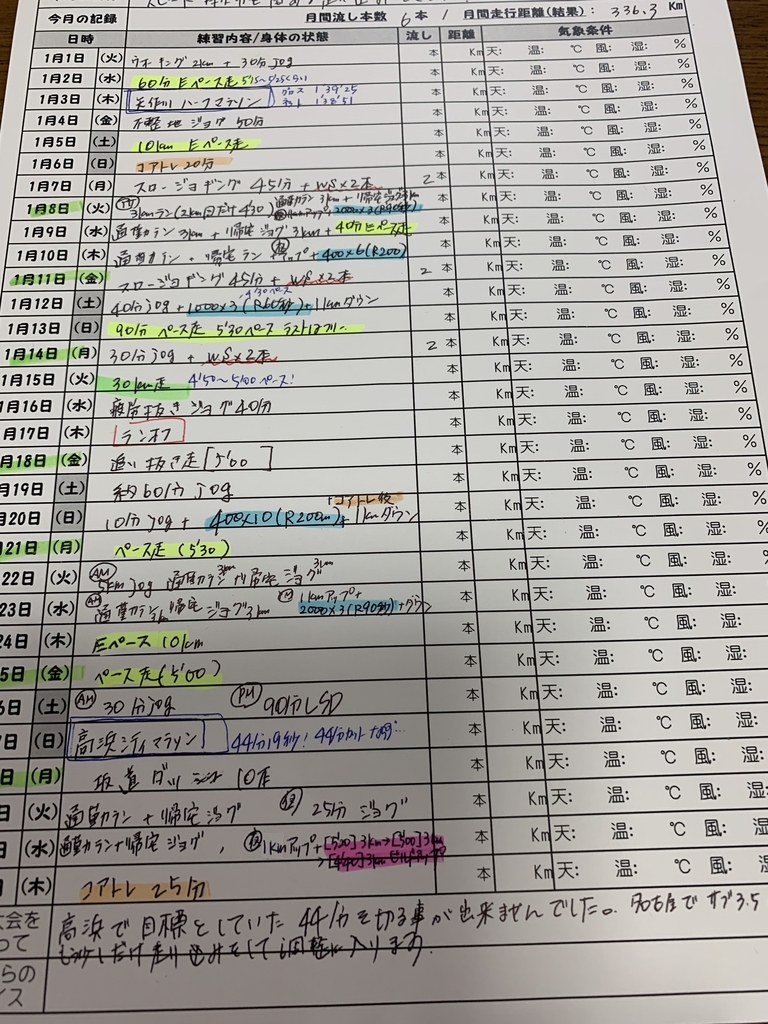 今月の記録 月間流し本数 6本 / 月間走行距離(結果): 336.3 Km
日時 練習内容/身体の状態 流し 距離 気象条件
1月1日 (火) ウオーキング2km + 30分jog 本 Km 天: 温: ℃ 風: 湿: %
1月2日 (水) 60分 Eペース走 5'15~5'25くらい 本 Km 天: 温: ℃ 風: 湿: %
1月3日 (木) 矢作川ハーフマラソン グロス 1:39'25 ネット 1:38'51 本 Km 天: 温: ℃ 風: 湿: %
1月4日 (金) 不整地ジョグ 50分 本 Km 天: 温: ℃ 風: 湿: %
1月5日 (土) 10km Eペース走 本 Km 天: 温: ℃ 風: 湿: %
1月6日 (日) コアトレ20分 本 Km 天: 温: ℃ 風: 湿: %
1月7日 (月) スロージョギング 45分 + WS×2本 2 本 Km 天: 温: ℃ 風: 湿: %
1月8日 (火) 3kmラン(2km目だけ4'30) 通勤ラン 3km + 帰宅ジョグ3km 1kmアップ+2000×3(R90秒) 本 Km 天: 温: ℃ 風: 湿: %
1月9日 (水) 通勤ラン 3km + 帰宅ジョグ3km + 40分Eペース走 本 Km 天: 温: ℃ 風: 湿: %
1月10日 (木) 通勤ラン + 帰宅ラン アップ+400×6(R200) 本 Km 天: 温: ℃ 風: 湿: %
1月11日 (金) スロージョギング 45分 + WS×2本 2 本 Km 天: 温: ℃ 風: 湿: %
1月12日 (土) 40分jog + 1000×3(R60秒)+1kmダウン 4'30ペース 本 Km 天: 温: ℃ 風: 湿: %
1月13日 (日) 90分ペース走 5'30ペース 本 Km 天: 温: ℃ 風: 湿: %
1月14日 (月) 30分jog + WS×2本 2 本 Km 天: 温: ℃ 風: 湿: %
1月15日 (火) 30km走 4'50~5'00ペース! 本 Km 天: 温: ℃ 風: 湿: %
1月16日 (水) 疲労抜きジョグ40分 本 Km 天: 温: ℃ 風: 湿: %
月17日 (木) ランオフ 本 Km 天: 温: ℃ 風: 湿: %
月18日 (金) 追い抜き走[5'00] 本 Km 天: 温: ℃ 風: 湿: %
月19日 (土) 約60分jog 本 Km 天: 温: ℃ 風: 湿: %
月20日 (日) 10分jog + 400×10(R200m)+1kmダウン +コアトレ後 本 Km 天: 温: ℃ 風: 湿: %
21日 (月) ペース走(5'30) 本 Km 天: 温: ℃ 風: 湿: %
22日 (火) AM 5km jog 通勤ラン3km 帰宅ジョグ3km 本 Km 天: 温: ℃ 風: 湿: %
23日 (水) AM 通勤ラン 帰宅ジョグ3km 1kmアップ+2000×3(R90秒)+ダウン 本 Km 天: 温: ℃ 風: 湿: %
24日 (木) Eペース 10km 本 Km 天: 温: ℃ 風: 湿:
5日 (金) ペース走(5'00) 本 Km 天: 温: ℃ 風: 湿:
6日 (土) AM 30分jog PM 90分LSD 本 Km 天: 温: ℃ 風: 湿:
7日 (日) 高浜シティマラソン 44分19秒! 44分カット 本 Km 天: 温: ℃ 風: 湿:
日 (月) 坂道ダッシュ 10走 本 Km 天: 温: ℃ 風: 湿:
日 (火) 通勤ラン + 帰宅ジョグ 夜 25分ジョグ 本 Km 天: 温: ℃ 風: 湿:
日 (水) 通勤ラン+帰宅ジョグ, 夜 1kmアップ+[5'20]3km→[5'00]3km→[4'40]3km ビルドアップ 本 Km 天: 温: ℃ 風: 湿:
日 (木) コアトレ 25分 本 Km 天: 温: ℃ 風: 湿:
大会を 高浜で目標としていた 44分を切る事が出来ませんでした。名古屋でサブ3.5
って もう少しだけ走り込みをして 調整に入ります
らの
イス